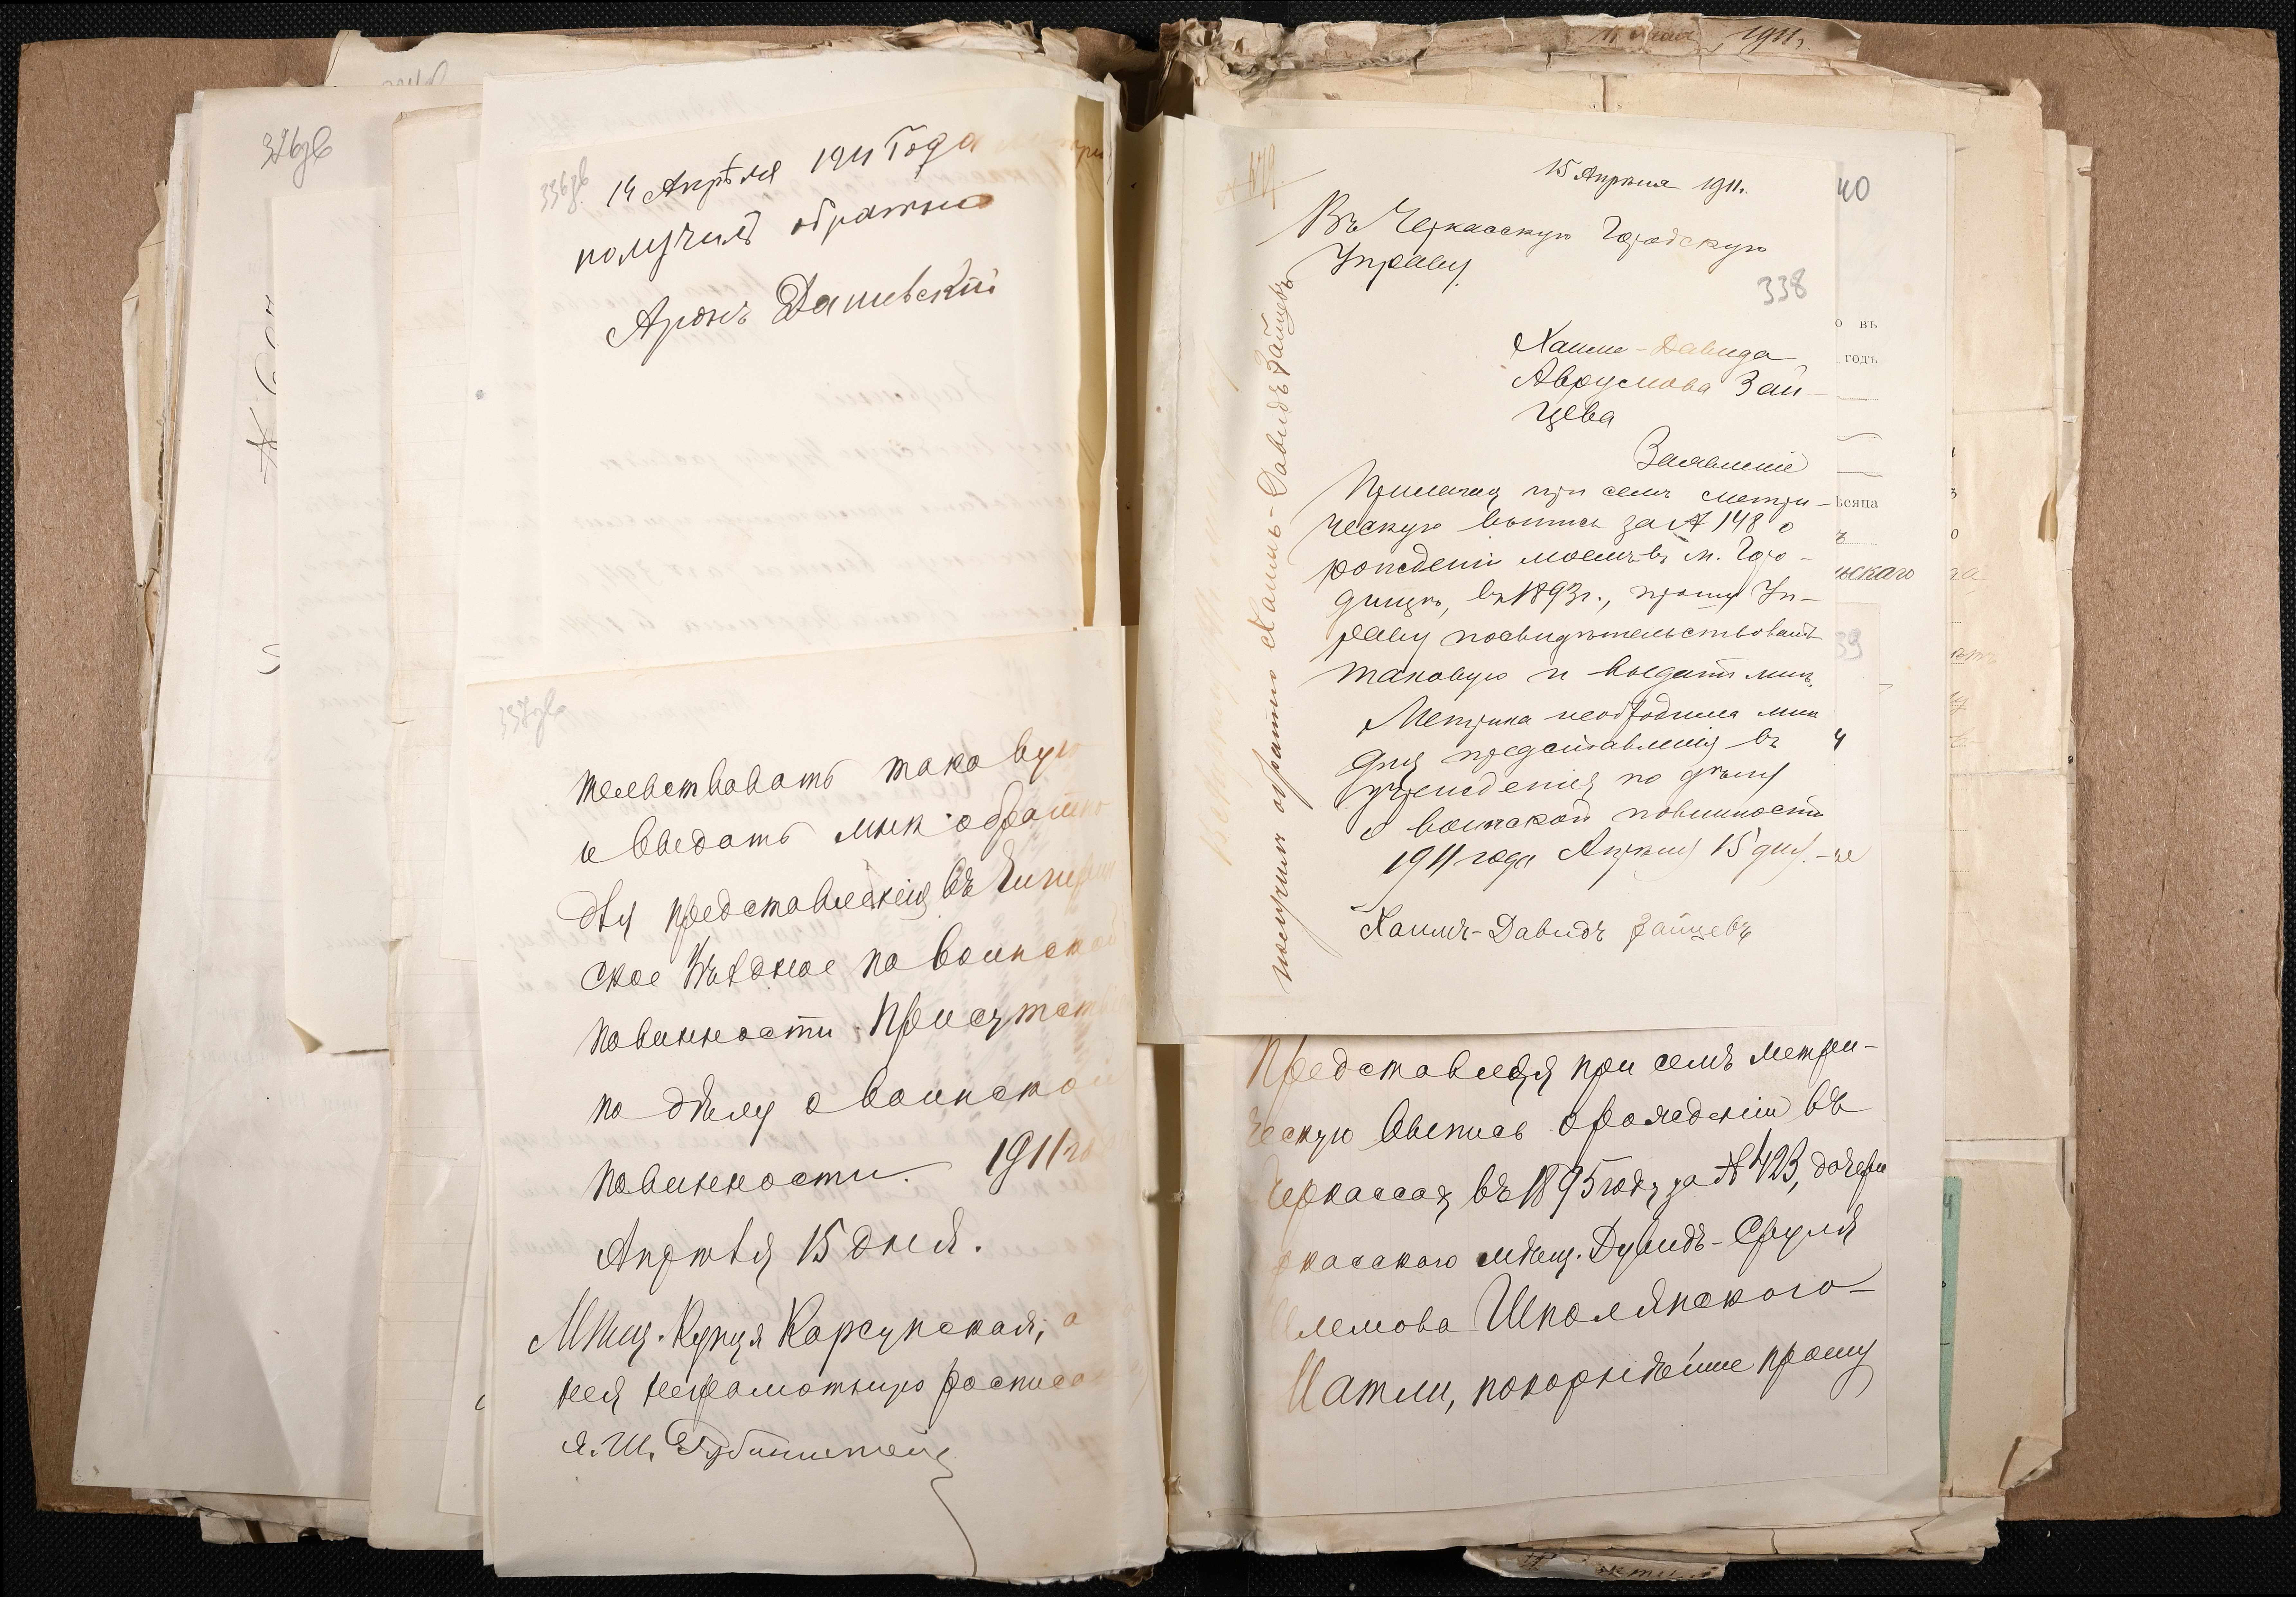 326об
336об.
14 Апрѣля 1911 Года
получилъ обратно
Аронъ Дашевскій
337об
тельствовать таковую
и выдать мнѣ обратно
для представленія въ
ское Уѣздное по воинской
повинности Присутств
по дѣлу о воинской
повинности. 1911 го
Апрѣля 15 дня.
Мѣщ. Корсунская, а
нея неграмотную расписа
я. Ш.
15 Апрѣля 1911.
Въ Черкасскую Городскую
Управу.
338
Хаима-Давида
Аврумова Зай-
цева
Заявленіе
Прилагая при семъ метри-
ческую выпись за № 148 о
рожденіи моемъ въ м. Горо-
дищѣ, въ 1893 г., прошу Уп-
раву посвидѣтельствовать
таковую и выдать мнѣ.
Метрика необходима мнѣ
для представленія въ
учрежденія по дѣлу
о воинской повинности
1911 года Апрѣля 15 дня.
Хаимъ-Давидъ Зайцевъ
получилъ обратно Хаимъ-Давидъ Зайцевъ
40
о въ
годъ
ѣсяца
нскаго
39
Представляя при семъ метри-
ческую выпись о рожденіи въ
Черкассах въ 1895 году за № 423, дочери
ркасского мѣщ. Дувидъ-Сруля
Шполянского
Матли, покорнѣйше прошу
1911 г.